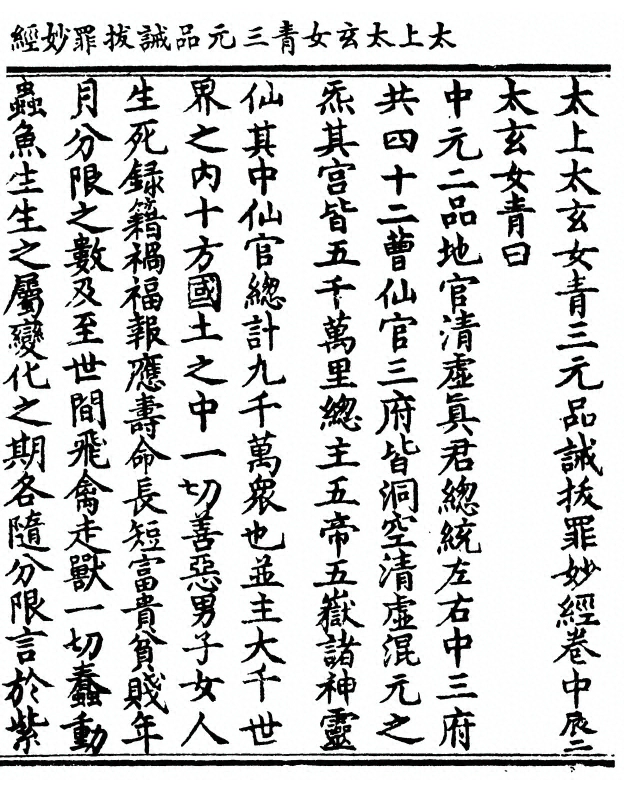 太上太玄女青三元品誡拔罪妙經
太上太玄女青三元品誡拔罪妙經卷中 辰二
太玄女青曰
中元二品地官清虛眞君總統左右中三府
共四十二曹仙官三府皆洞空清虛混元之
炁其宫皆五千萬里總主五帝五嶽諸神靈
仙其中仙官總計九千萬衆也並主大千世
界之内十方國土之中一切善惡男子女人
生死録籍禍福報應壽命長短富貴貧賤年
月分限之數及至世間飛禽走獸一切蠢動
蟲魚生生之屬變化之期各隨分限言於紫